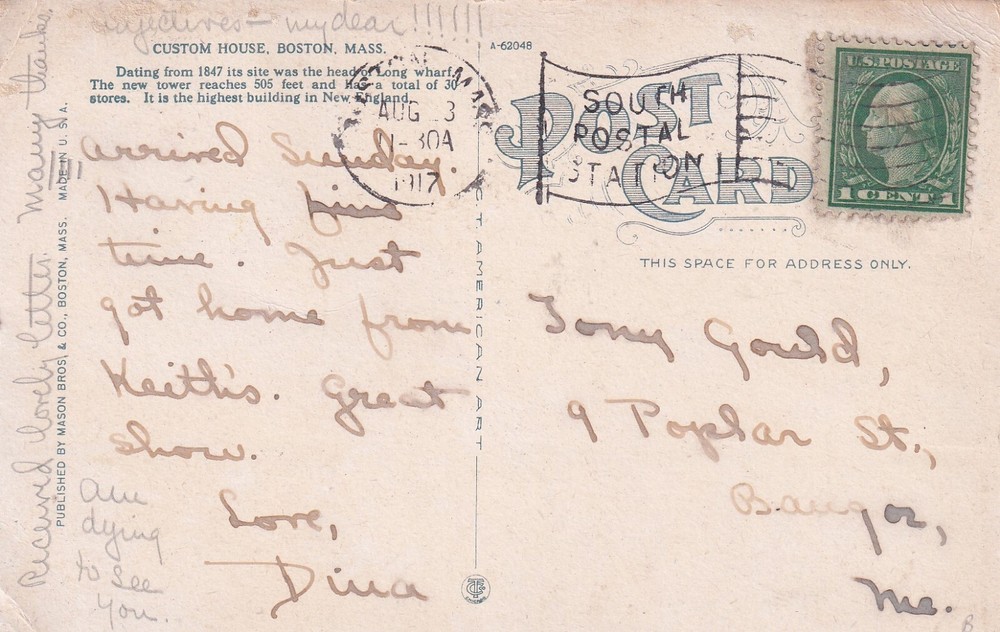 adjectives - my dear!!!!!!
CUSTOM HOUSE, BOSTON, MASS.
Dating from 1847 its site was the head of Long wharf.
The new tower reaches 505 feet and has a total of 30
stores. It is the highest building in New England.
Arrived Sunday.
Having fine
time. Just
got home from
Keith's. Great
show.
Love,
Dina
am
dying
to see
you.
Received lovely letter. Many thanks.
PUBLISHED BY MASON BROS. & CO., BOSTON, MASS. MADE IN U. S. A.
A-62048
BOSTON, MASS.
AUG 13
1-30A
1917
SOUTH
POSTAL
STATION
POST
CARD
U.S. POSTAGE
1 CENT 1
THIS SPACE FOR ADDRESS ONLY.
Tony Gould,
9 Poplar St.,
Bangor,
Me.
B